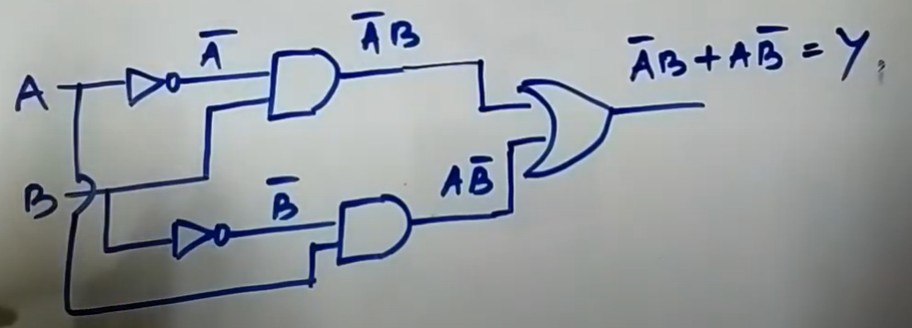 A
A̅
A̅B
A̅B + AB̅ = Y,
B
B̅
AB̅